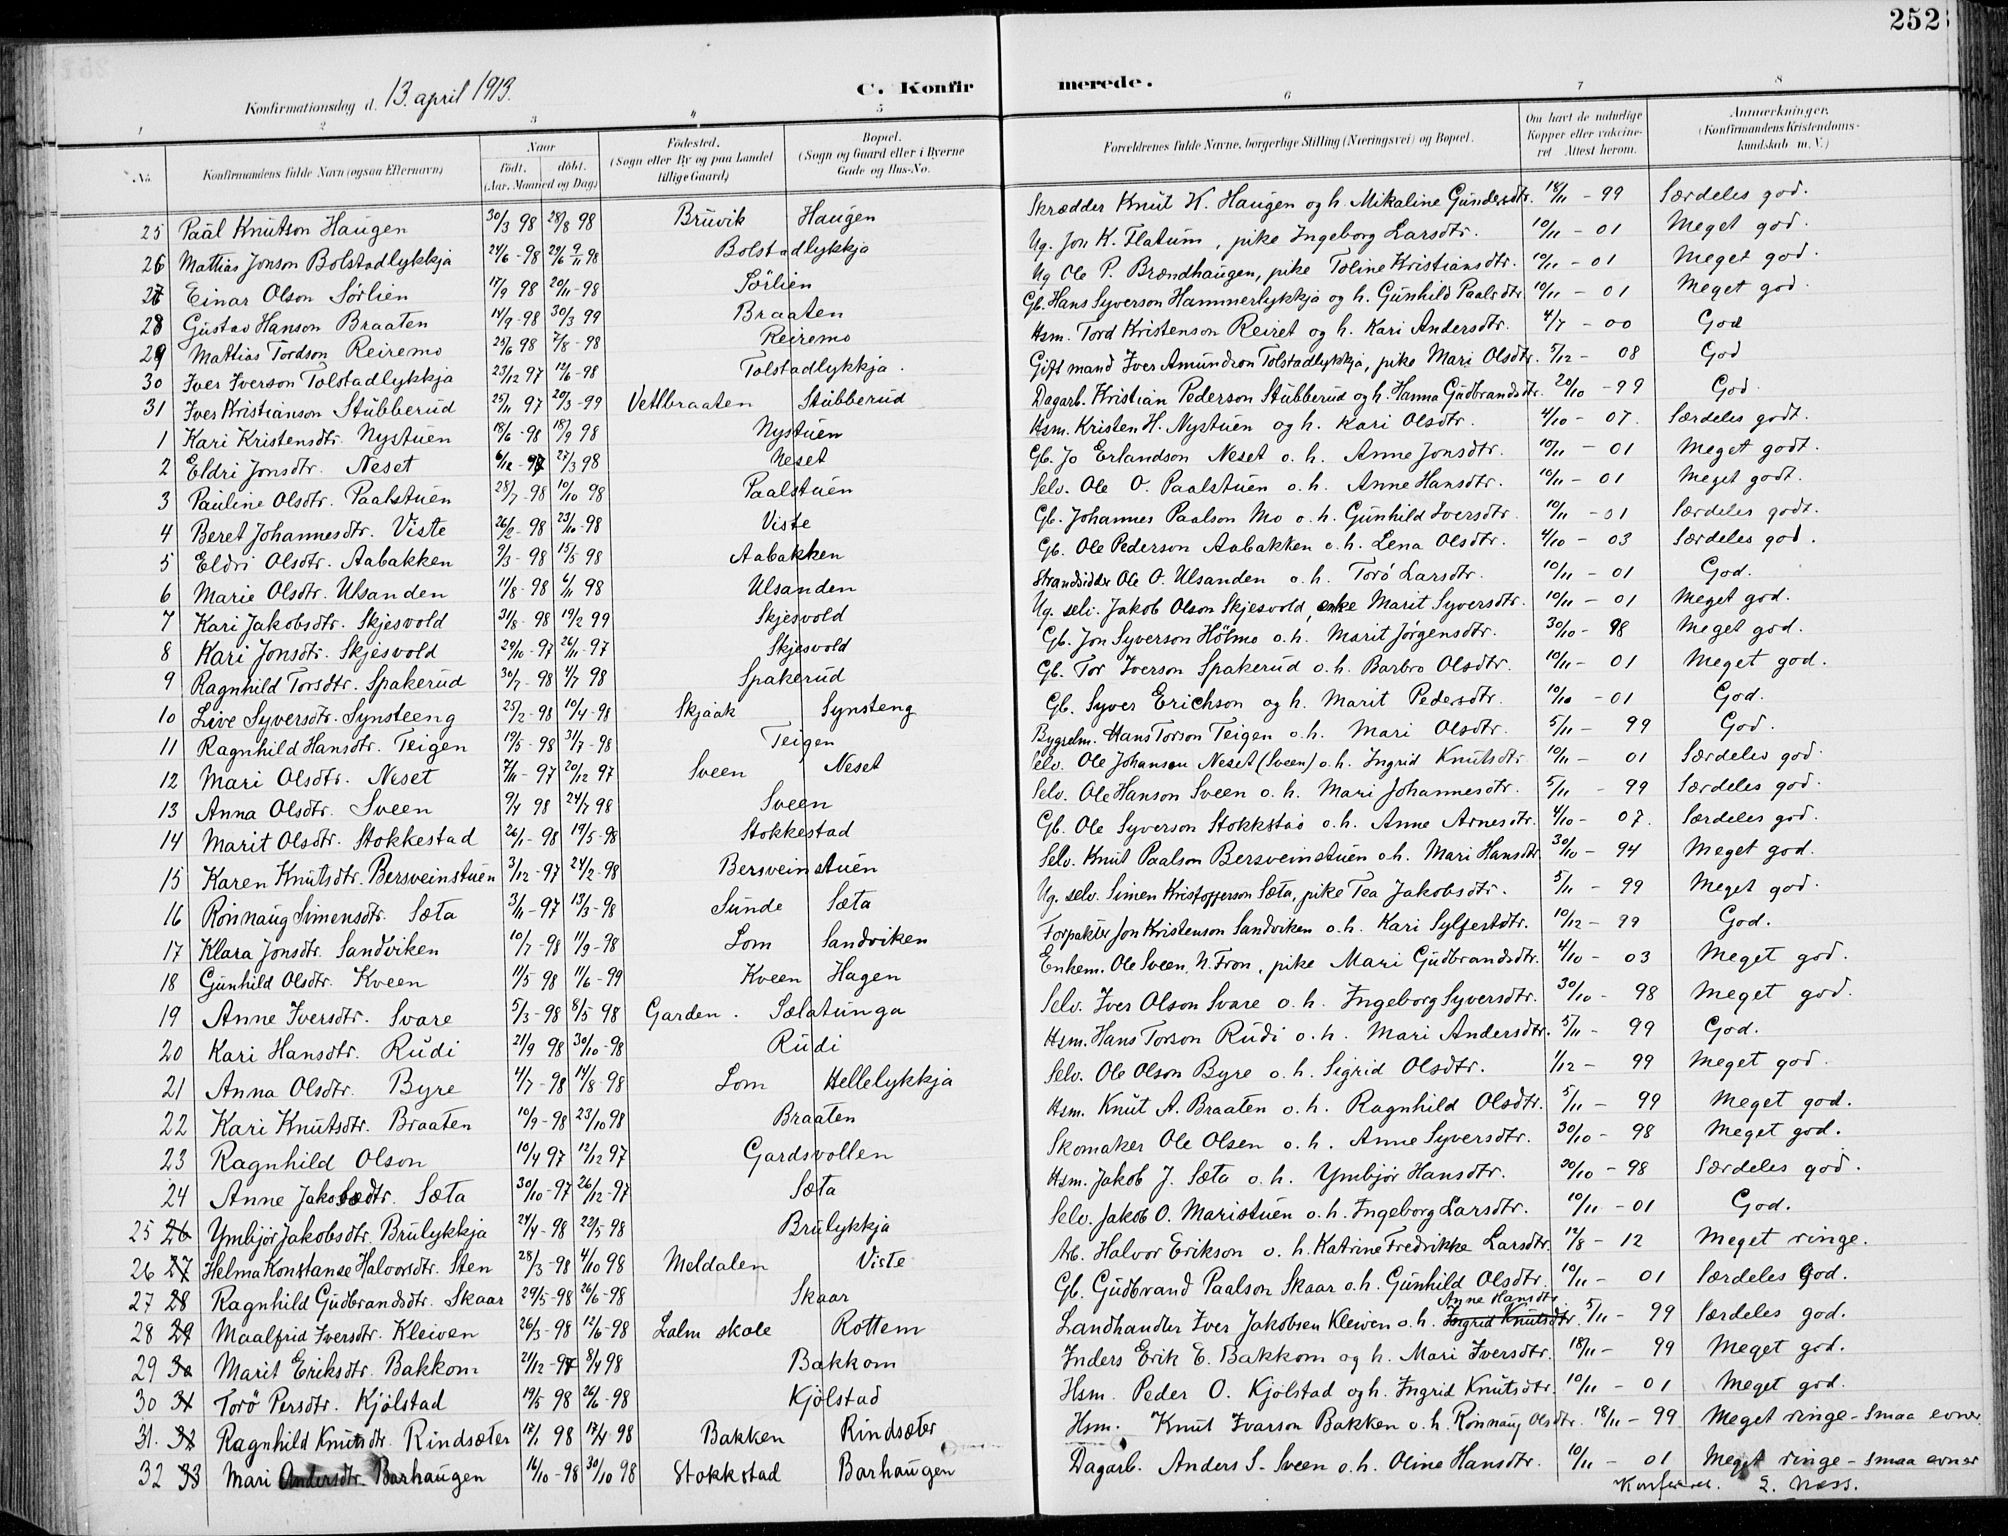 252
Konfirmationsdag d. 13. april 1913.
C. Konfirmerede.
1 2 3 4 5 6 7 8
No. Konfirmandens fulde Navn (ogsaa Efternavn) Naar födt. döbt. (Aar, Maaned og Dag) Födested. (Sogn eller By og paa Landet tillige Gaard) Bopæl. (Sogn og Gaard eller i Byerne Gade og Hus-No. Forældrenes fulde Navne, borgerlige Stilling (Næringsvei) og Bopæl. Om havt de naturlige Kopper eller vaccineret Attest herom. Anmærkninger. (Konfirmandens Kristendomskundskab m. V.)
25 Paal Knutson Haugen 30/3 98 28/8 98 Bruvik Haugen Skrædder Knut K. Haugen og h. Mikaline Gundersdtr. 18/11 - 99 Særdeles god.
26 Mattias Jonson Bolstadlykkja 24/6 - 98 Bolstadlykkja Ug. Jon K. Flatum, pike Ingeborg Larsdtr. 10/11 - 01 Meget god.
27 Einar Olson Sørlien 17/9 98 20/11 - 98 Sørlien Ug Ole P. Brændhaugen, pike Toline Kristiansdtr. 10/11 - 01 Meget god.
28 Gustav Hanson Braaten 14/9 - 98 30/3 99 Braaten Gb. Hans Syverson Hammerlykkja og h. Gunhild Paalsdtr 10/11 - 01 Meget god.
29 Mattias Tordson Reiremo 25/6 98 7/8 - 98 Reiremo Hsm. Tord Kristenson Reiret og h. Kari Andersdtr. 4/7 - 00 God
30 Iver Iverson Tolstadlykkja 23/12 97 12/6 - 98 Tolstadlykkja. Gift mand Iver Amundson Tolstadlykkja, pike Mari Olsdtr. 5/12 - 08 God
31 Iver Kristianson Stubberud 25/11 97 20/3 - 99 Vetlbraaten Stubberud Dagarb. Kristian Pederson Stubberud og h. Hanna Gudbrandsdtr. 20/10 - 99 God
1 Kari Kristensdtr. Nystuen 18/6 - 98 18/9 98 Nystuen Hsm. Kristen H. Nystuen og h. Kari Olsdtr. 4/10 - 07. Særdeles godt.
2 Eldri Jonsdtr. Neset 6/12 - 97 27/3 98 Neset Gb. Jo Erlandson Neset o. h. Anne Jonsdtr. 10/11 - 01 Meget godt.
3 Pauline Olsdtr. Paalstuen 28/7 - 98 10/10 98 Paalstuen Selv. Ole O. Paalstuen o. h. Anne Hansdtr. 10/11 - 01 Meget godt.
4 Beret Johannesdtr. Viste 26/2 - 98 23/10 - 98 Viste Gb. Johannes Paalson Mo o. h. Gunhild Iversdtr. 10/11 - 01 Særdeles godt.
5 Eldri Olsdtr. Aabakken 9/3 - 98 15/5 98 Aabakken Gb. Ole Pederson Aabakken o. h. Lena Olsdtr. 4/10 - 03 Særdeles god.
6 Marie Olsdtr. Ulsanden 11/8 - 98 6/11 98 Ulsanden Strandsidder Ole O. Ulsanden o. h. Torö Larsdtr. 10/11 - 01 God.
7 Kari Jakobsdtr. Skjesvold 31/8 - 98 19/2 99 Skjesvold Ug. selv. Jakob Olson Skjesvold, enke Marit Syversdtr. 10/11 - 01 Meget god.
8 Kari Jonsdtr. Skjesvold 29/10 - 97 26/11 - 97 Skjesvold Gb. Jon Syverson Hölmo o. h. Marit Jörgensdtr. 30/10 - 98 Meget god.
9 Ragnhild Torsdtr. Spakerud 30/7 - 98 4/7 98 Spakerud Gb. Tor Iverson Spakerud o. h. Barbro Olsdtr. 10/11 - 01 Meget god.
10 Live Syversdtr. Synsteeng 25/2 - 98 10/4 - 98 Skjaak Synsteng Gb. Syver Erichson og h. Marit Pedersdtr. 10/10 - 01 God.
11 Ragnhild Hansdtr. Teigen 19/5 - 98 31/7 - 98 Teigen Bygselm. Hans Torson Teigen o. h. Mari Olsdtr. 5/11 - 99 God.
12 Mari Olsdtr. Neset 7/11 - 97 20/12 97 Sveen Neset Selv. Ole Johansen Neset (Sveen) o. h. Ingrid Knutsdtr 10/11 - 01 Særdeles god
13 Anna Olsdtr. Sveen 9/4 98 24/7 98 Sveen Selv. Ole Hanson Sveen o. h. Mari Johannesdtr. 5/11 - 99 Særdeles god.
14 Marit Olsdtr. Stokkestad 26/1 - 98 19/5 - 98 Stokkestad Gb. Ole Syverson Stokkstad o. h. Anne Arnesdtr. 4/10 - 07. Særdeles god.
15 Karen Knutsdtr. Bersveinstuen 3/12 - 97 24/2 - 98 Bersveinstuen Selv. Knut Paalson Bersveinstuen o h. Mari Hansdtr 30/10 - 94 Meget god.
16 Rönnaug Simensdtr. Sæta 3/11 - 97 13/3 - 98 Sunde Sæta Ug. selv. Simen Kristofferson Sæta, pike Tea Jakobsdtr. 5/11 - 99 Meget god.
17 Klara Jonsdtr. Sandviken 10/7 - 98 11/9 - 98 Lom Sandviken Forpakter Jon Kristenson Sandviken o. h. Kari Sylfestdtr. 10/12 - 99 God.
18 Gunhild Olsdtr. Kveen 11/5 98 11/6 - 99 Kveen Hagen Enkem. Ole Sveen, N. Fron, pike Mari Gudbrandsdtr. 4/10 - 03 Meget god.
19 Anne Iversdtr. Svare 5/3 - 98 8/5 98 Garden. Sælatunga Selv. Iver Olson Svare o. h. Ingeborg Syversdtr. 30/10 - 98 Meget god.
20 Kari Hansdtr. Rudi 21/9 98 30/10 - 98 Rudi Hsm. Hans Torson Rudi o. h. Mari Andersdtr. 5/11 - 99 God.
21 Anna Olsdtr. Byre 4/7 - 98 14/8 - 98 Lom Hellelykkja Selv. Ole Olson Byre o. h. Sigrid Olsdtr. 1/12 - 99 Meget god.
22 Kari Knutsdtr. Braaten 10/9 - 98 23/10 98 Braaten Hsm. Knut A. Braaten o. h. Ragnhild Olsdtr. 5/11 - 99 Meget god.
23 Ragnhild Olson 10/4 97 12/12 97 Gardsvollen Skomaker Ole Olsen o. h. Anne Syversdtr. 30/10 - 98 Meget god.
24 Anne Jakobsdtr. Sæta 30/10 - 97 26/12 - 97 Sæta Hsm. Jakob J. Sæta o. h. Ymbjør Hansdtr. 30/10 - 98 Særdeles god.
25 26 Ymbjör Jakobsdtr. Brulykkja 24/4 - 98 22/5 - 98 Brulykkja Selv. Jakob O. Maristuen o. h. Ingeborg Larsdtr. 10/11 - 01 God.
26 27 Helma Konstanse Halvorsdtr. Sten 28/3 - 98 4/10 98 Meldalen Viste Arb. Halvor Erikson o. h. Katrine Fredrikke Larsdtr. 12/8 - 12 Meget ringe.
27 28 Ragnhild Gudbrandsdtr. Skaar 29/5 - 98 26/6 - 98 Skaar Gb. Gudbrand Paalson Skaar o. h. Gunhild Olsdtr. 10/11 - 01 Særdeles god.
28 29 Maalfrid Iversdtr. Kleiven 26/3 - 98 12/6 - 98 Lalm skole Rottem Landhandler Iver Jakobsen Kleiven o. h. Ingrid Knutsdtr. Anne Hansdtr. 5/11 - 99 Særdeles god.
29 30 Marit Eriksdtr. Bakkom 21/12 - 97 8/4 98 Bakkom Inders Erik E. Bakkom og h. Mari Iversdtr. 18/11 - 99 Meget god.
30 31 Torö Persdtr. Kjölstad 19/5 98 26/6 - 98 Kjölstad Hsm. Peder O. Kjölstad og h. Ingrid Knutsdtr. 10/11 - 01 Meget god.
31. 32 Ragnhild Knutsdtr. Rindsæter 17/1 98 17/4 - 98 Bakken Rindsæter Hsm. Knut Ivarson Bakken o. h. Rönnaug Olsdtr. 18/11 - 99 Meget ringe - smaa evner
32 33 Mari Andersdtr. Barhaugen 16/10 - 98 30/10 98 Stokkstad Barhaugen Dagarb. Anders S. Sveen o. h. Oline Hansdtr. 10/11 - 01 Meget ringe - smaa evner
Konfereret. E. Næss.